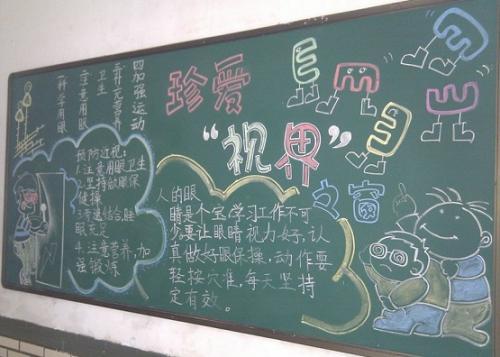 珍爱
“视界”
之窗
E E E E E
一科学用眼
二注意用眼卫生
三补充营养
四加强运动
预防近视:
1.注意用眼卫生
2.坚持做眼保
健操
3.劳逸结合,睡
眼充足
4.注意营养,加
强锻炼
人的眼
睛是个宝,学习工作不可
少,要让眼睛视力好,认
真做好眼保操,动作要
轻按穴准,每天坚持
定有效。